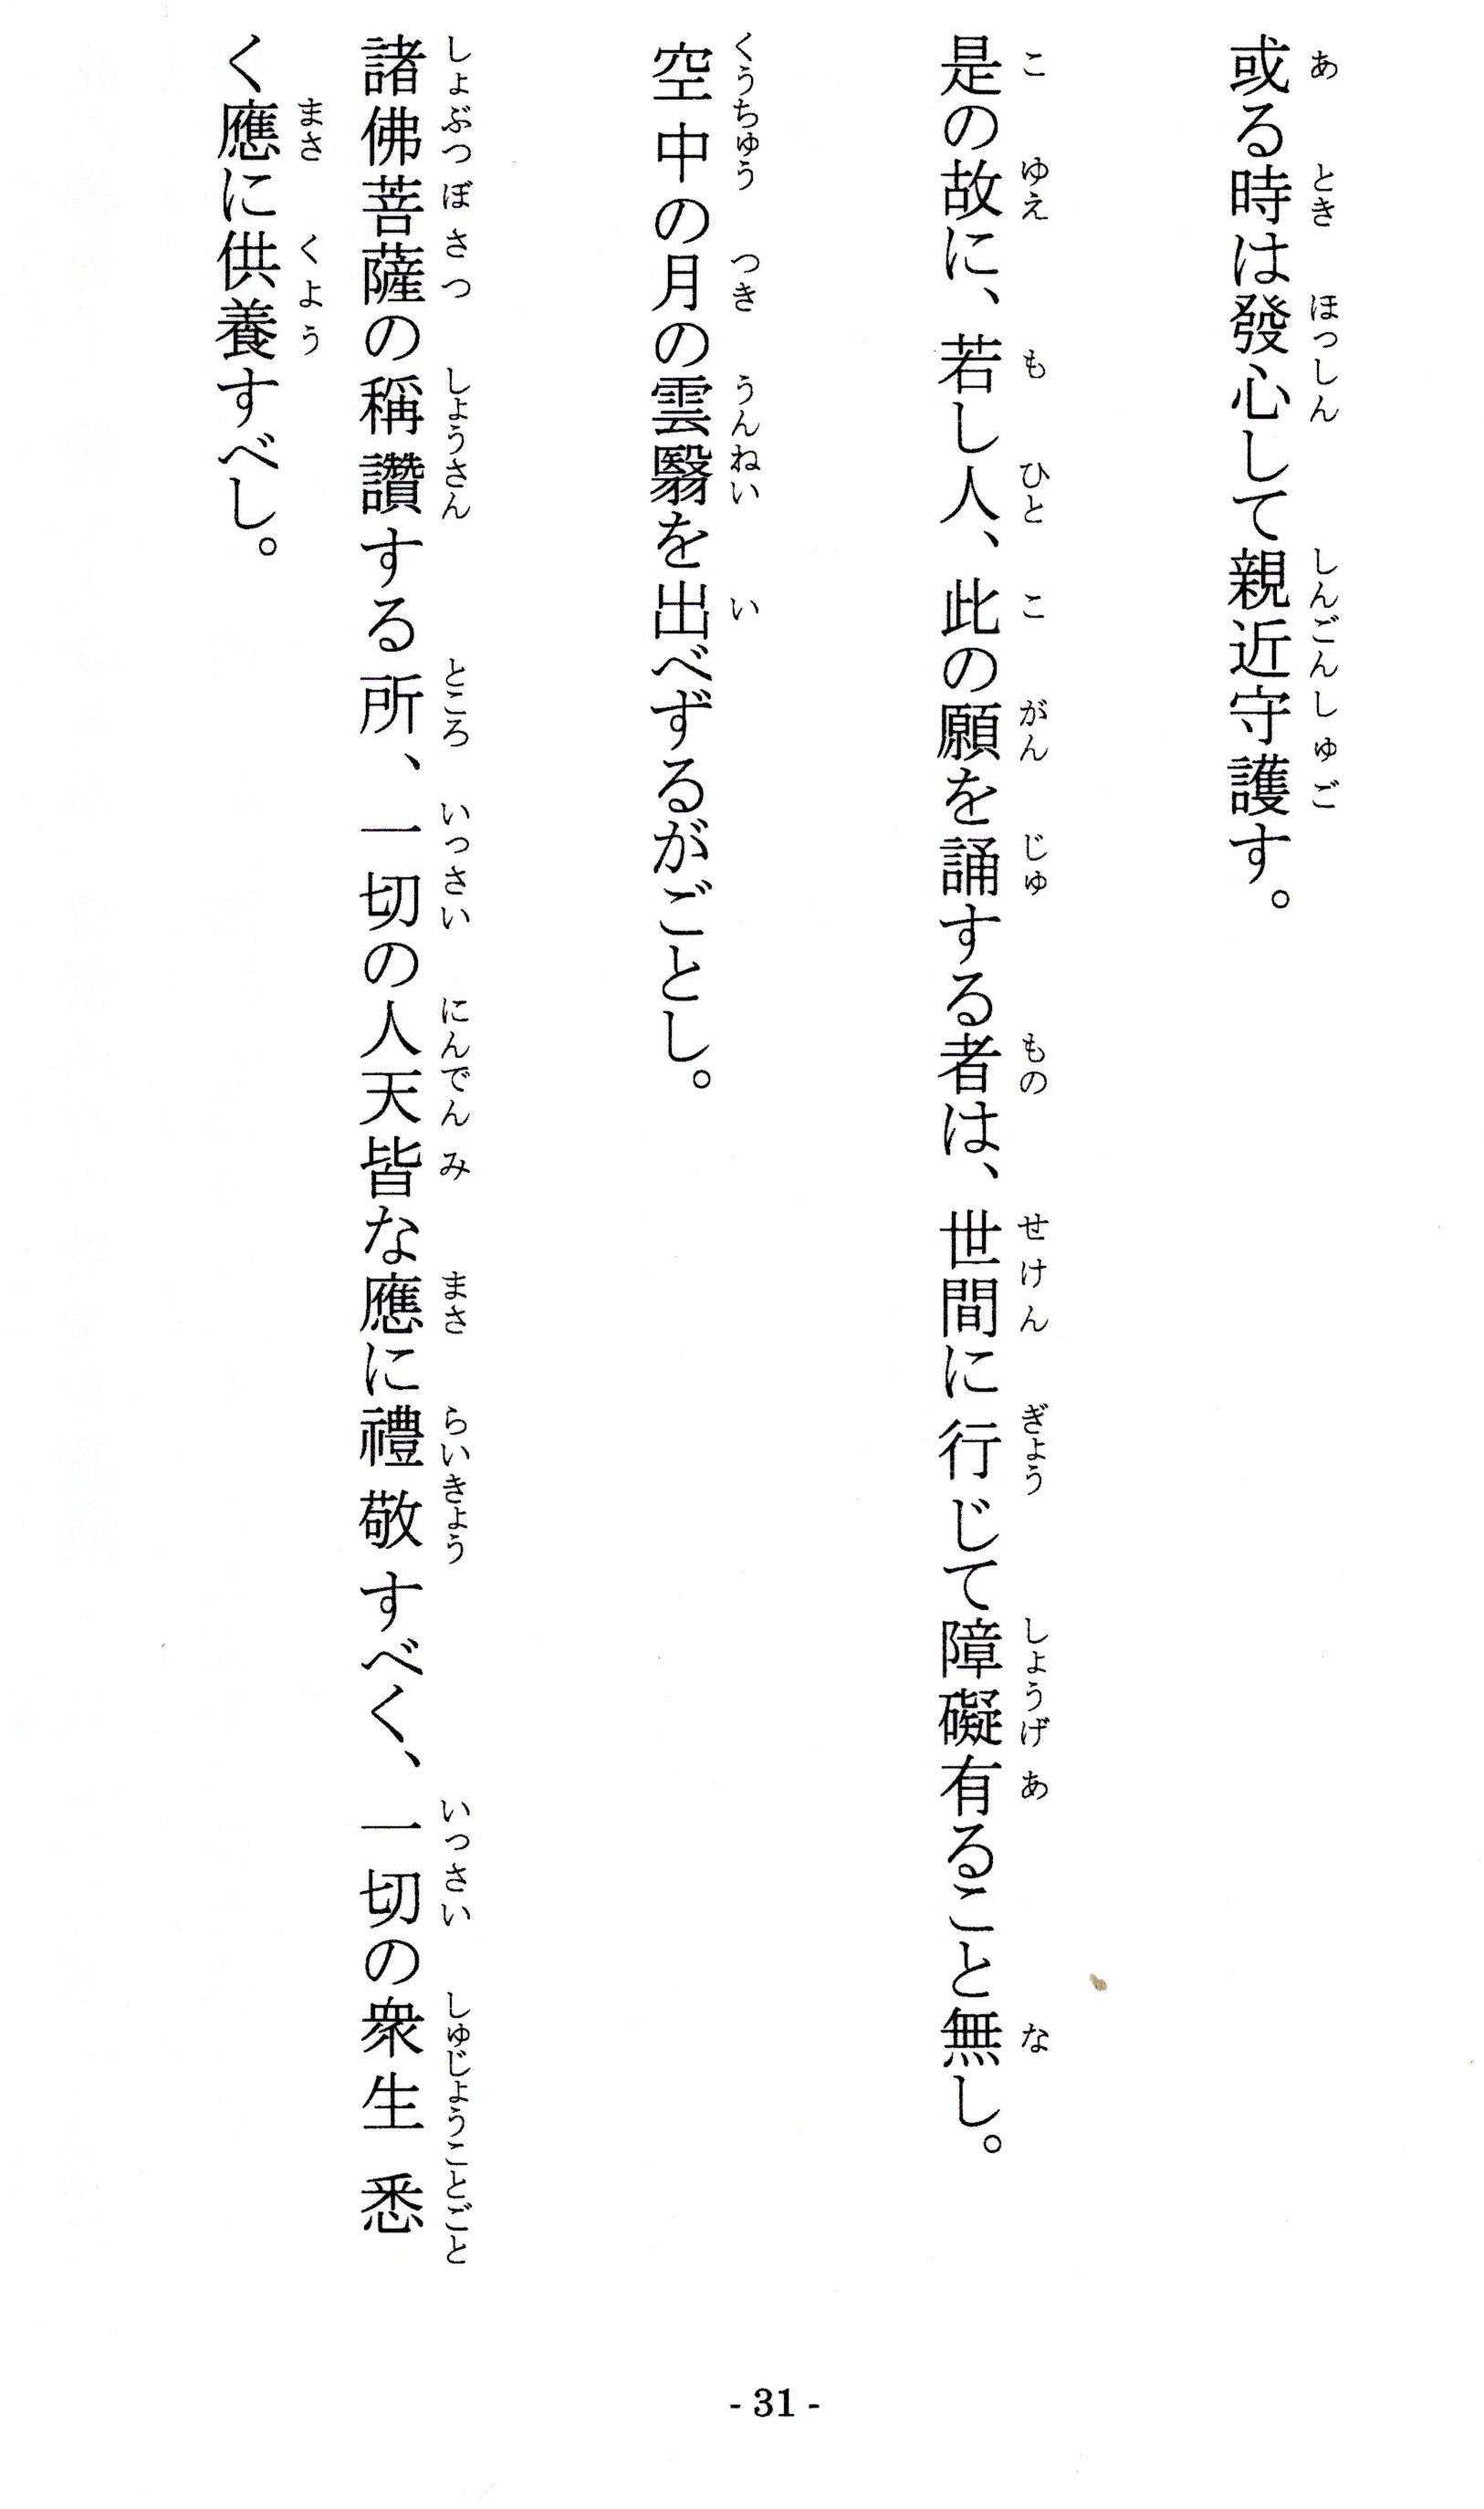 或る時は發心して親近守護す。
是の故に、若し人、此の願を誦する者は、世間に行じて障礙有ること無し。
空中の月の雲翳を出べずるがごとし。
諸佛菩薩の稱讚する所、一切の人天皆な應に禮敬すべく、一切の衆生悉
く應に供養すべし。
- 31 -